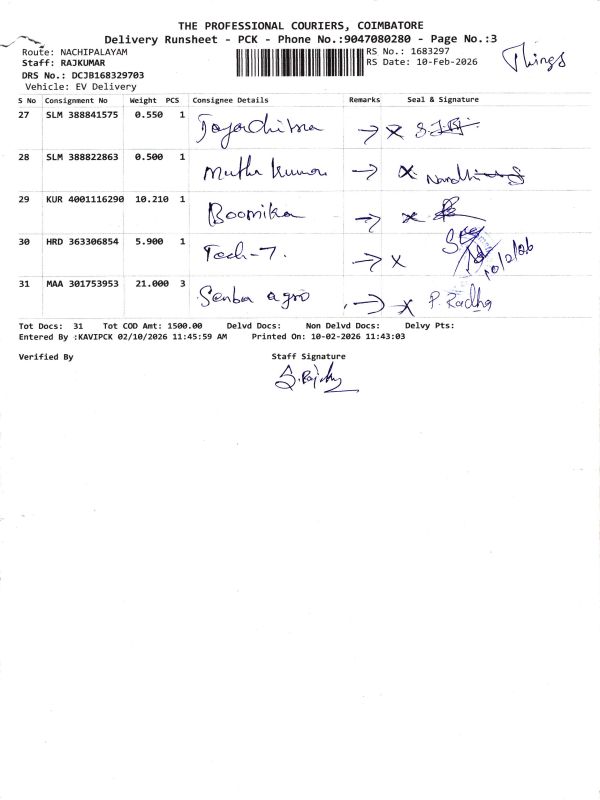 THE PROFESSIONAL COURIERS, COIMBATORE
Delivery Runsheet - PCK - Phone No.:9047080280 - Page No.:3
Route: NACHIPALAYAM RS No.: 1683297 Things
Staff: RAJKUMAR RS Date: 10-Feb-2026
DRS No.: DCJB168329703
Vehicle: EV Delivery
S No Consignment No Weight PCS Consignee Details Remarks Seal & Signature
27 SLM 388841575 0.550 1 → x
28 SLM 388822863 0.500 1 Muthu kumar → x
29 KUR 4001116290 10.210 1 Boomika → x
30 HRD 363306854 5.900 1 Tech-7. → x 10/2/26
31 MAA 301753953 21.000 3 Senba agro → x P. Radha
Tot Docs: 31 Tot COD Amt: 1500.00 Delvd Docs: Non Delvd Docs: Delvy Pts:
Entered By :KAVIPCK 02/10/2026 11:45:59 AM Printed On: 10-02-2026 11:43:03
Verified By Staff Signature